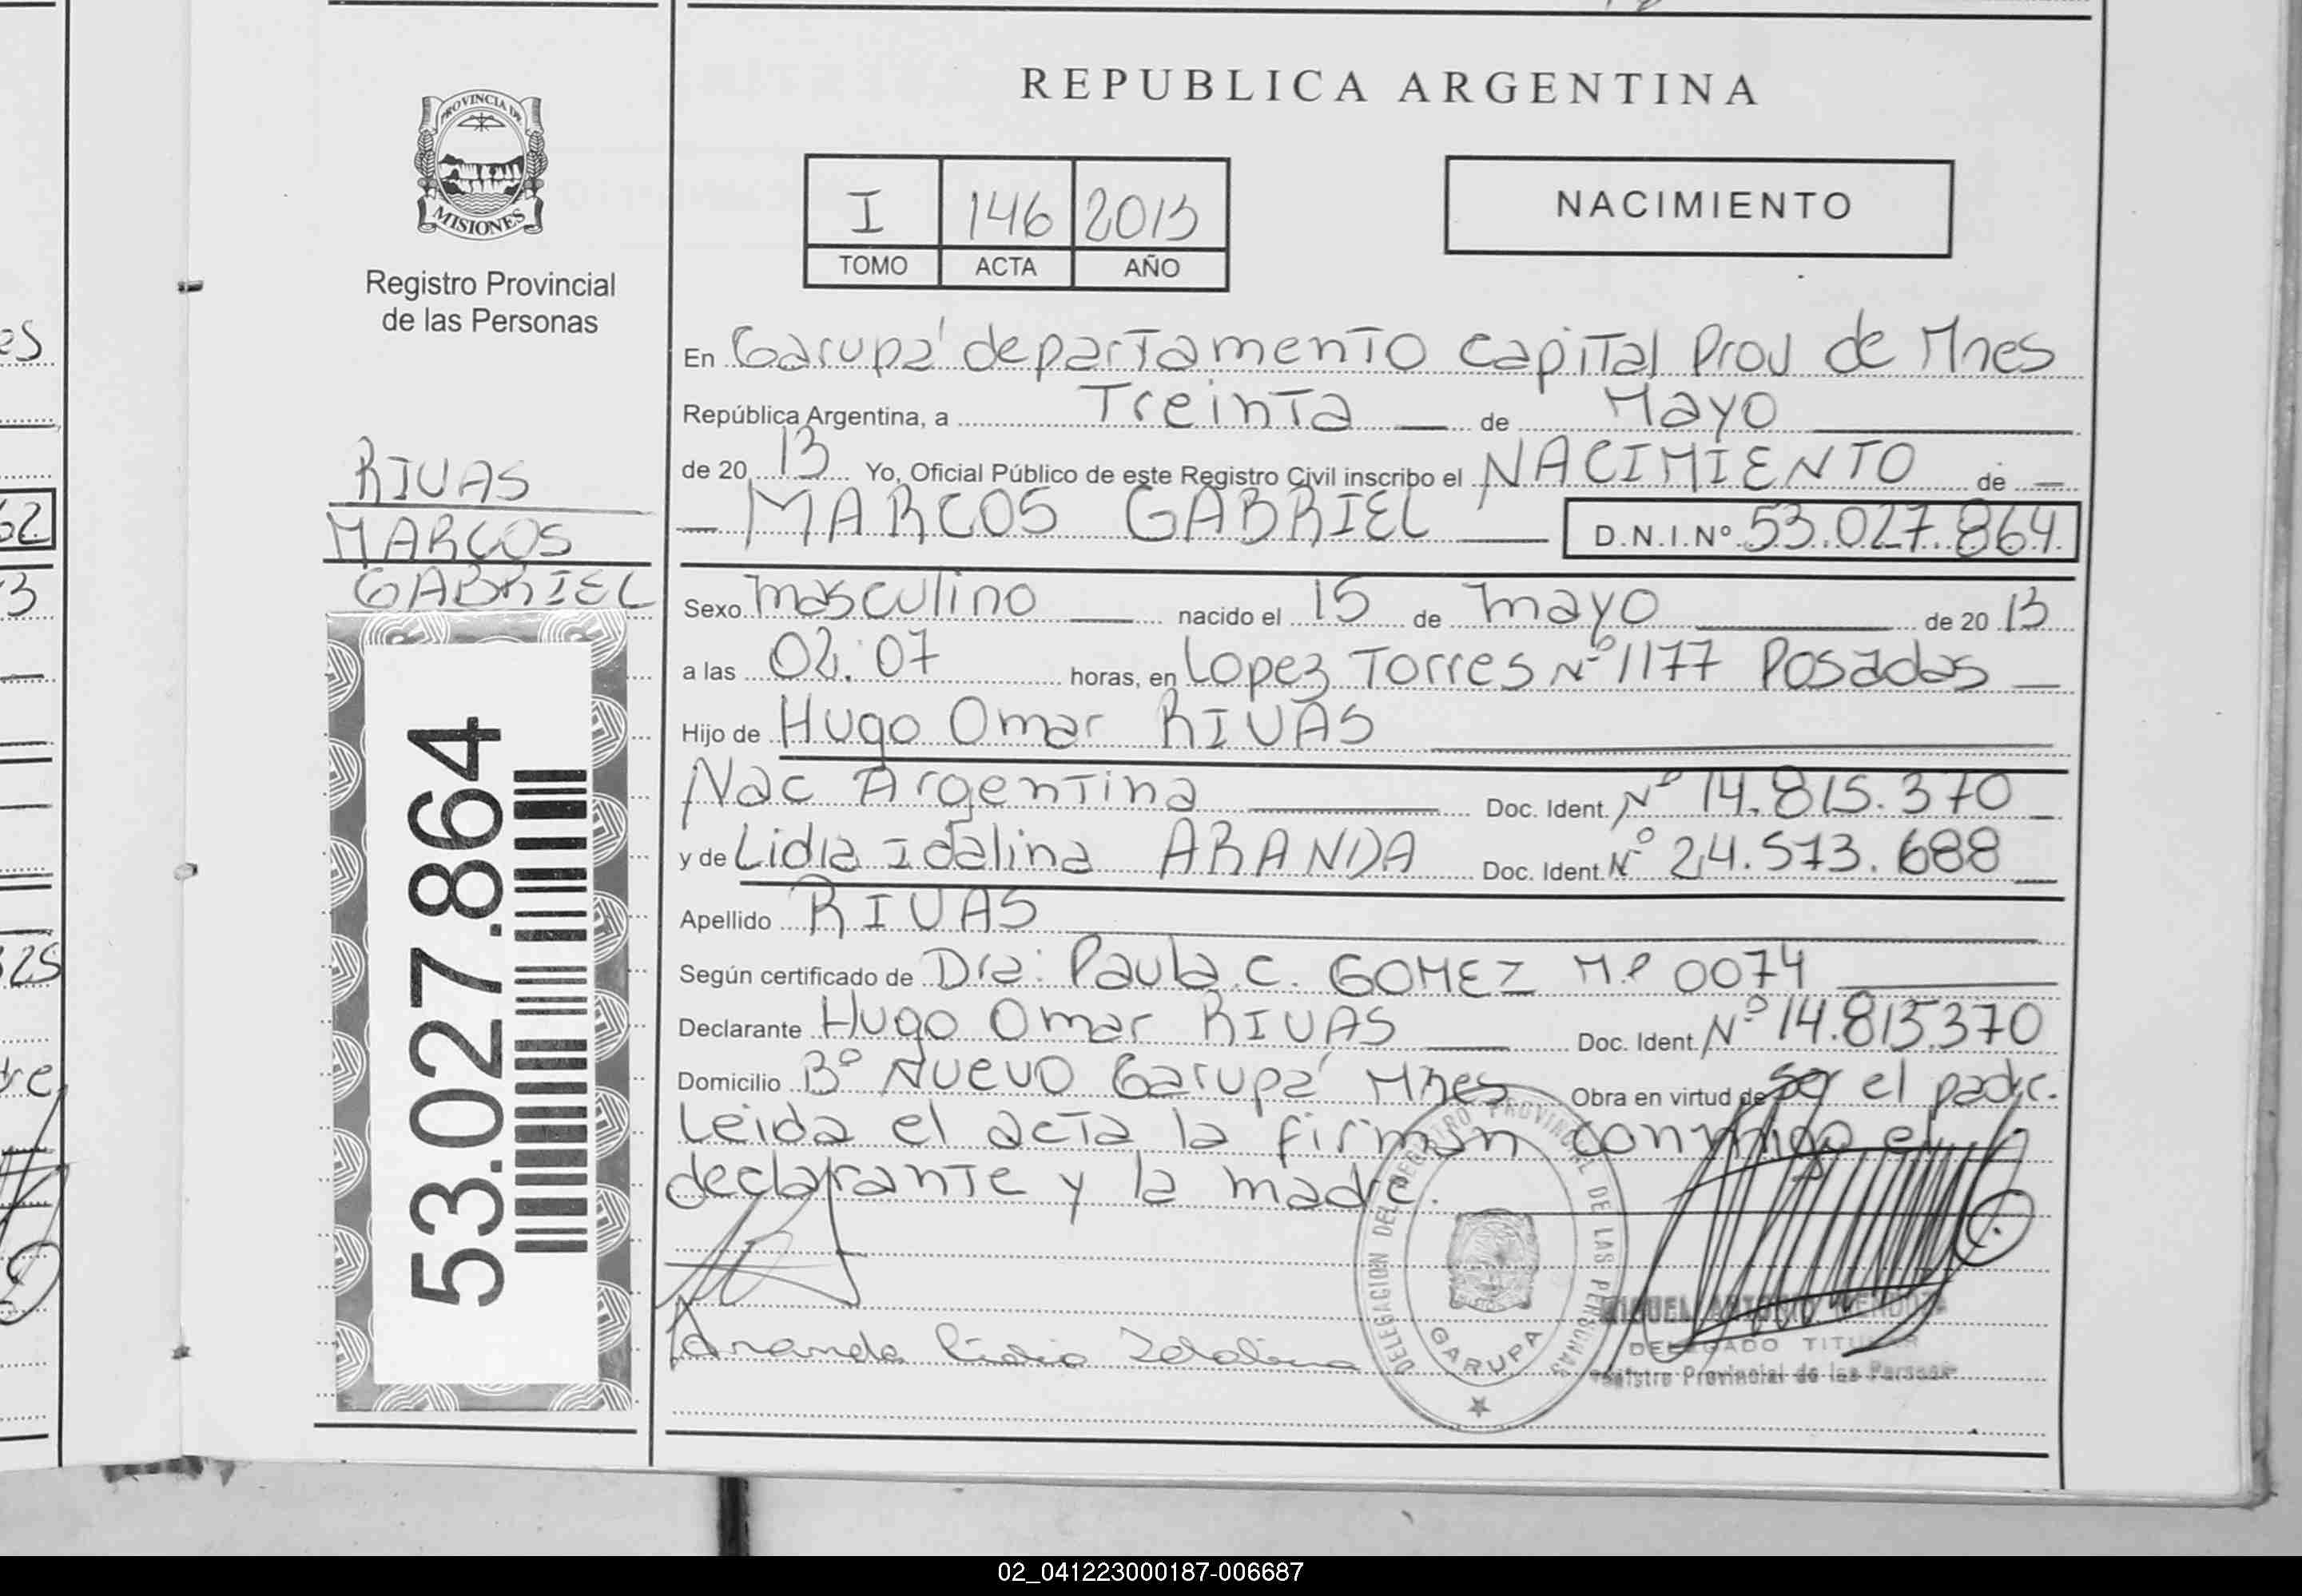 REPUBLICA ARGENTINA
PROVINCIA DE
MISIONES
Registro Provincial
de las Personas
I 146 2013
TOMO ACTA AÑO
NACIMIENTO
En Garupá departamento Capital Prov de Mnes
República Argentina, a Treinta de Mayo
de 20 13 Yo, Oficial Público de este Registro Civil inscribo el NACIMIENTO de
MARCOS GABRIEL D.N.I.Nº 53.027.864
RIVAS
MARCOS
GABRIEL
53.027.864
Sexo masculino nacido el 15 de mayo de 20 13
a las 02:07 horas, en Lopez Torres Nº 1177 Posadas
Hijo de Hugo Omar RIVAS
Nac Argentina Doc. Ident. Nº 14.815.370
y de Lidia Idalina ARANDA Doc. Ident. Nº 24.573.688
Apellido RIVAS
Según certificado de Dra: Paula C. GOMEZ M.P 0074
Declarante Hugo Omar RIVAS Doc. Ident. Nº 14.815.370
Domicilio Bº Nuevo Garupá Mnes Obra en virtud de ser el padre.
Leida el acta la firman conmigo el
declarante y la madre.
Aranda Lidia Idalina
DELEGACION DEL REGISTRO PROVINCIAL DE LAS PERSONAS
GARUPA
MIGUEL ANTONIO MENDOZA
DELEGADO TITULAR
Registro Provincial de las Personas
es
62
3
325
dre
02_041223000187-006687